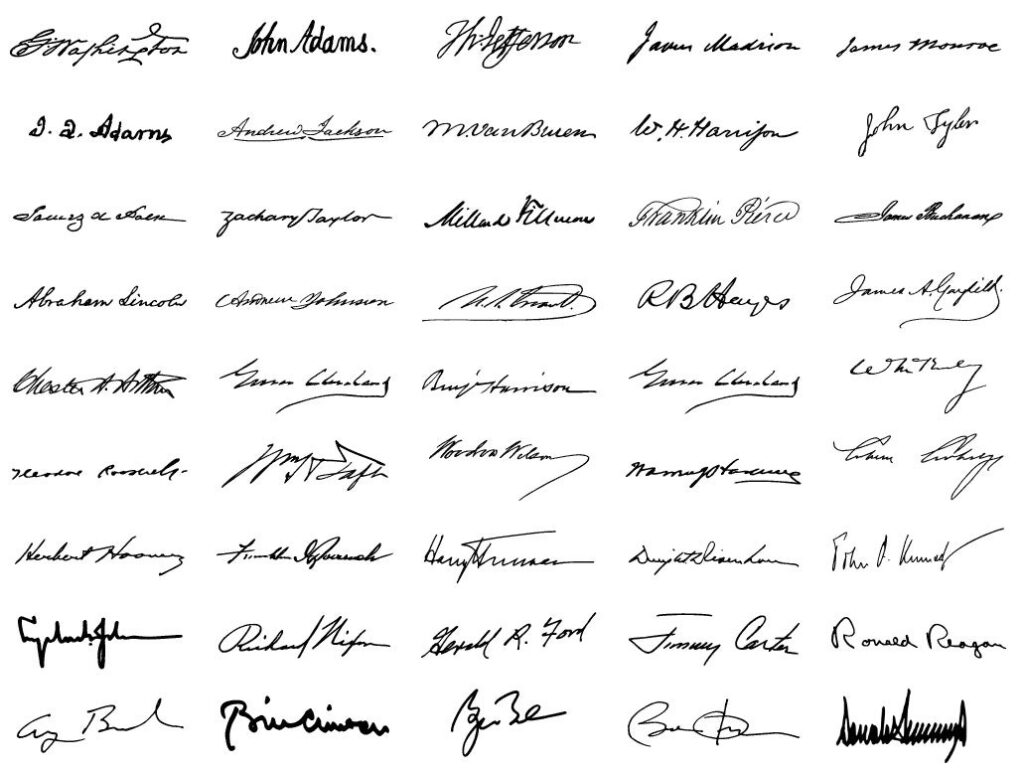 G. Washington John Adams. Th. Jefferson James Madison James Monroe
J. Q. Adams Andrew Jackson M. Van Buren W. H. Harrison John Tyler
Zachary Taylor Millard Fillmore Franklin Pierce James Buchanan
Abraham Lincoln Andrew Johnson U.S. Grant R B Hayes James A. Garfield.
Chester A. Arthur Grover Cleveland Benj Harrison Grover Cleveland
Theodore Roosevelt Wm H Taft Woodrow Wilson Warren G Harding
Herbert Hoover Franklin D Roosevelt Harry Truman Dwight D Eisenhower John F. Kennedy
Richard Nixon Gerald R. Ford Jimmy Carter Ronald Reagan
Bill Clinton Donald Trump